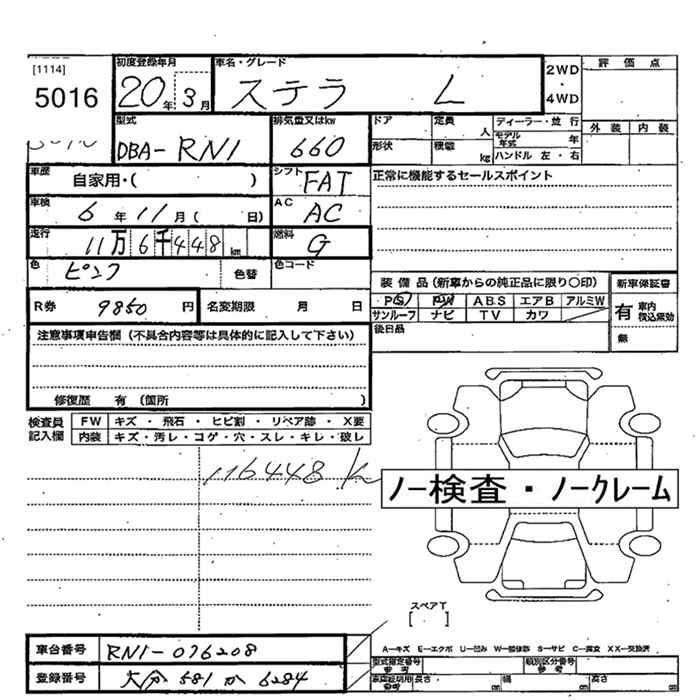 [1114]
5016
初度登録年月
20年3月
車名・グレード
ステラ L
2WD
・
4WD
評価点
外装 内装
型式
DBA-RN1
排気量又はkw
660
ドア
形状
定員 人
積載 kg
ディーラー・並行
モデル年式 年
ハンドル 左・右
車歴
自家用・( )
シフト
FAT
正常に機能するセールスポイント
車検
6年11月( 日)
AC
AC
走行
11万6千448km
燃料
G
色
ピンク
色替
色コード
装備品(新車からの純正品に限り〇印)
PS PW ABS エアB アルミW
サンルーフ ナビ TV カワ
新車保証書
有 車内積込無効
無
R券 9850円
名変期限 月 日
後日品
注意事項申告欄(不具合内容等は具体的に記入して下さい)
修復歴 有(箇所 )
検査員記入欄
FW キズ・飛石・ヒビ割・リペア跡・X要
内装 キズ・汚レ・コゲ・穴・スレ・キレ・破レ
116448k
ノー検査・ノークレーム
スペアT
[ ]
車台番号 RN1-076208
登録番号 大分 581 か 6284
A―キズ E―エクボ U―凹み W―補修跡 S―サビ C―腐食 XX―交換済
型式指定番号 参考
類別区分番号 参考
長さ cm 幅 cm 高さ cm